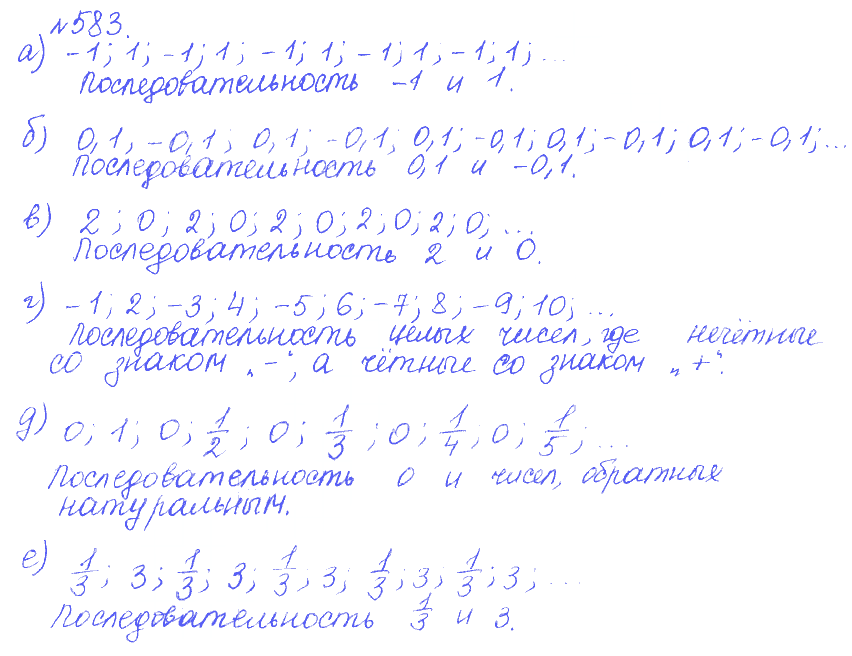 №583.
а) -1; 1; -1; 1; -1; 1; -1; 1; -1; 1; ...
Последовательность -1 и 1.
б) 0,1; -0,1; 0,1; -0,1; 0,1; -0,1; 0,1; -0,1; 0,1; -0,1; ...
Последовательность 0,1 и -0,1.
в) 2; 0; 2; 0; 2; 0; 2; 0; 2; 0; ...
Последовательность 2 и 0.
г) -1; 2; -3; 4; -5; 6; -7; 8; -9; 10; ...
Последовательность целых чисел, где нечётные
со знаком „-“, а чётные со знаком „+“.
д) 0; 1; 0; 1/2; 0; 1/3; 0; 1/4; 0; 1/5; ...
Последовательность 0 и чисел, обратных
натуральным.
е) 1/3; 3; 1/3; 3; 1/3; 3; 1/3; 3; 1/3; 3; ...
Последовательность 1/3 и 3.